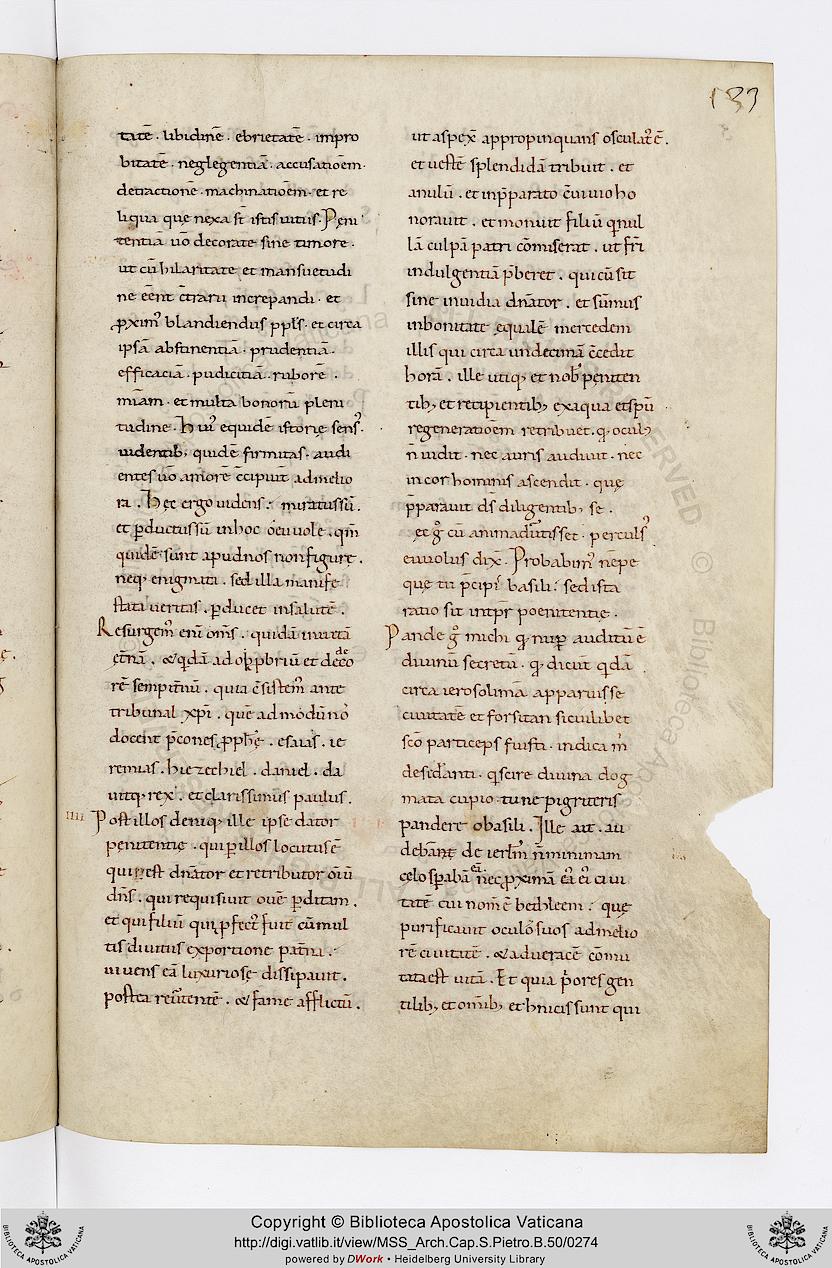 133
tatē . libidinē . ebrietatē . impro
bitatē . neglegentiā . accusatioēm .
detractionē . machinatioēm . et re
liqua quę nexa st̄ istis uitiis . Peni
tentiā uo decorate sine timore .
ut cū hilaritate et mansuetudi
ne eēnt c̄trarii increpandi . et
ꝓximꝰ blandiendus ppl's . et circa
ipsā abstinentiā . prudentiā .
efficaciā . pudicitiā . ruborē .
miām . et multa bonorū pleni
tudine . Huiꝰ equidē istorię sensꝰ .
uidentib; quidē firmitas . audi
entes uo amorē c̄cipiunt ad melio
ra . Hęc ergo uidens : miratus sū .
et ꝑductus sū in hoc o euuole . qm̄
quidē sunt apud nos non figure .
neq; enigmati . sed illa manife
stata ueritas . ꝑducet in salutē .
Resurgemꝰ eni om̄s . quidā in uitā
et̄nā . & qdā ad opꝓbriū et dec̄o
de
rē sempit̄nū . quia c̄sistemꝰ ante
tribunal xp̄i . quē ad modū nō
docent p̄cones ꝓphę . esaias . ie
remias . hiezechiel . daniel . da
uitq; rex . et clarissimus paulus .
IIII Post illos deniq; ille ipse dator
penitentie . qui ꝑ illos locutus ē
qui est dn̄ator et retributor oīū
dn̄s . qui requisiuit ouē ꝑditam .
et qui filiū qui ꝑfectꝰ fuit cū mul
tis diuitiis ex portione pat̄na .
uiuens eā luxuriosę dissipauit .
postea reūtentē . & fame afflictū .
ut aspex̄ appropinquans osculatꝰ ē .
et uestē splendidā tribuit . et
anulū . et in p̄parato c̄uiuio ho
norauit . et monuit filiū q nul
lā culpā patri cōmiserat . ut fr̄i
indulgentiā p̄beret . qui cū sit
sine inuidia dn̄ator . et sūmus
in bonitate equalē mercedem
illis qui circa undecimā c̄cedit
horā . ille utiq; et nob̄ peniten
tib; et recipientib; ex aqua et sp̄u
regeneratioēm retribuet . q oculꝰ
n̄ uidit . nec auris audiuit . nec
in cor hominis ascendit . quę
p̄parauit ds̄ diligentib; se .
ec g cū animaduertisset . perculsꝰ
euuolus dix̄ . Probabimꝰ nēpe
quę tu p̄cipiꝰ basili : sed ista
ratio sit intpr̄ poenitentię .
Pande g michi q nup auditū ē
diuinū secretū . q dicūt qdā
circa ierosolimā apparuisse
ciuitatē et forsitan sicuilibet
sc̄o particeps fuisti . indica m̄
desed̄anti . q scire diuina dog
mata cupio . tu ne pigriteris
pandere o basili . Ille ait . au
debānt de ierl̄m n̄ minimam
celo sp̄abā nec ꝓximā ei ei ciui
tatē cui nom̄ ē bethleem : quę
purificauit oculōs suos ad melio
rē ciuitatē . & ad ueracē cōmu
tata est uitā . Et quia p̄ores gen
tilib; et om̄ib; ethnicis sunt qui
Copyright © Biblioteca Apostolica Vaticana
http://digi.vatlib.it/view/MSS_Arch.Cap.S.Pietro.B.50/0274
powered by DWork • Heidelberg University Library